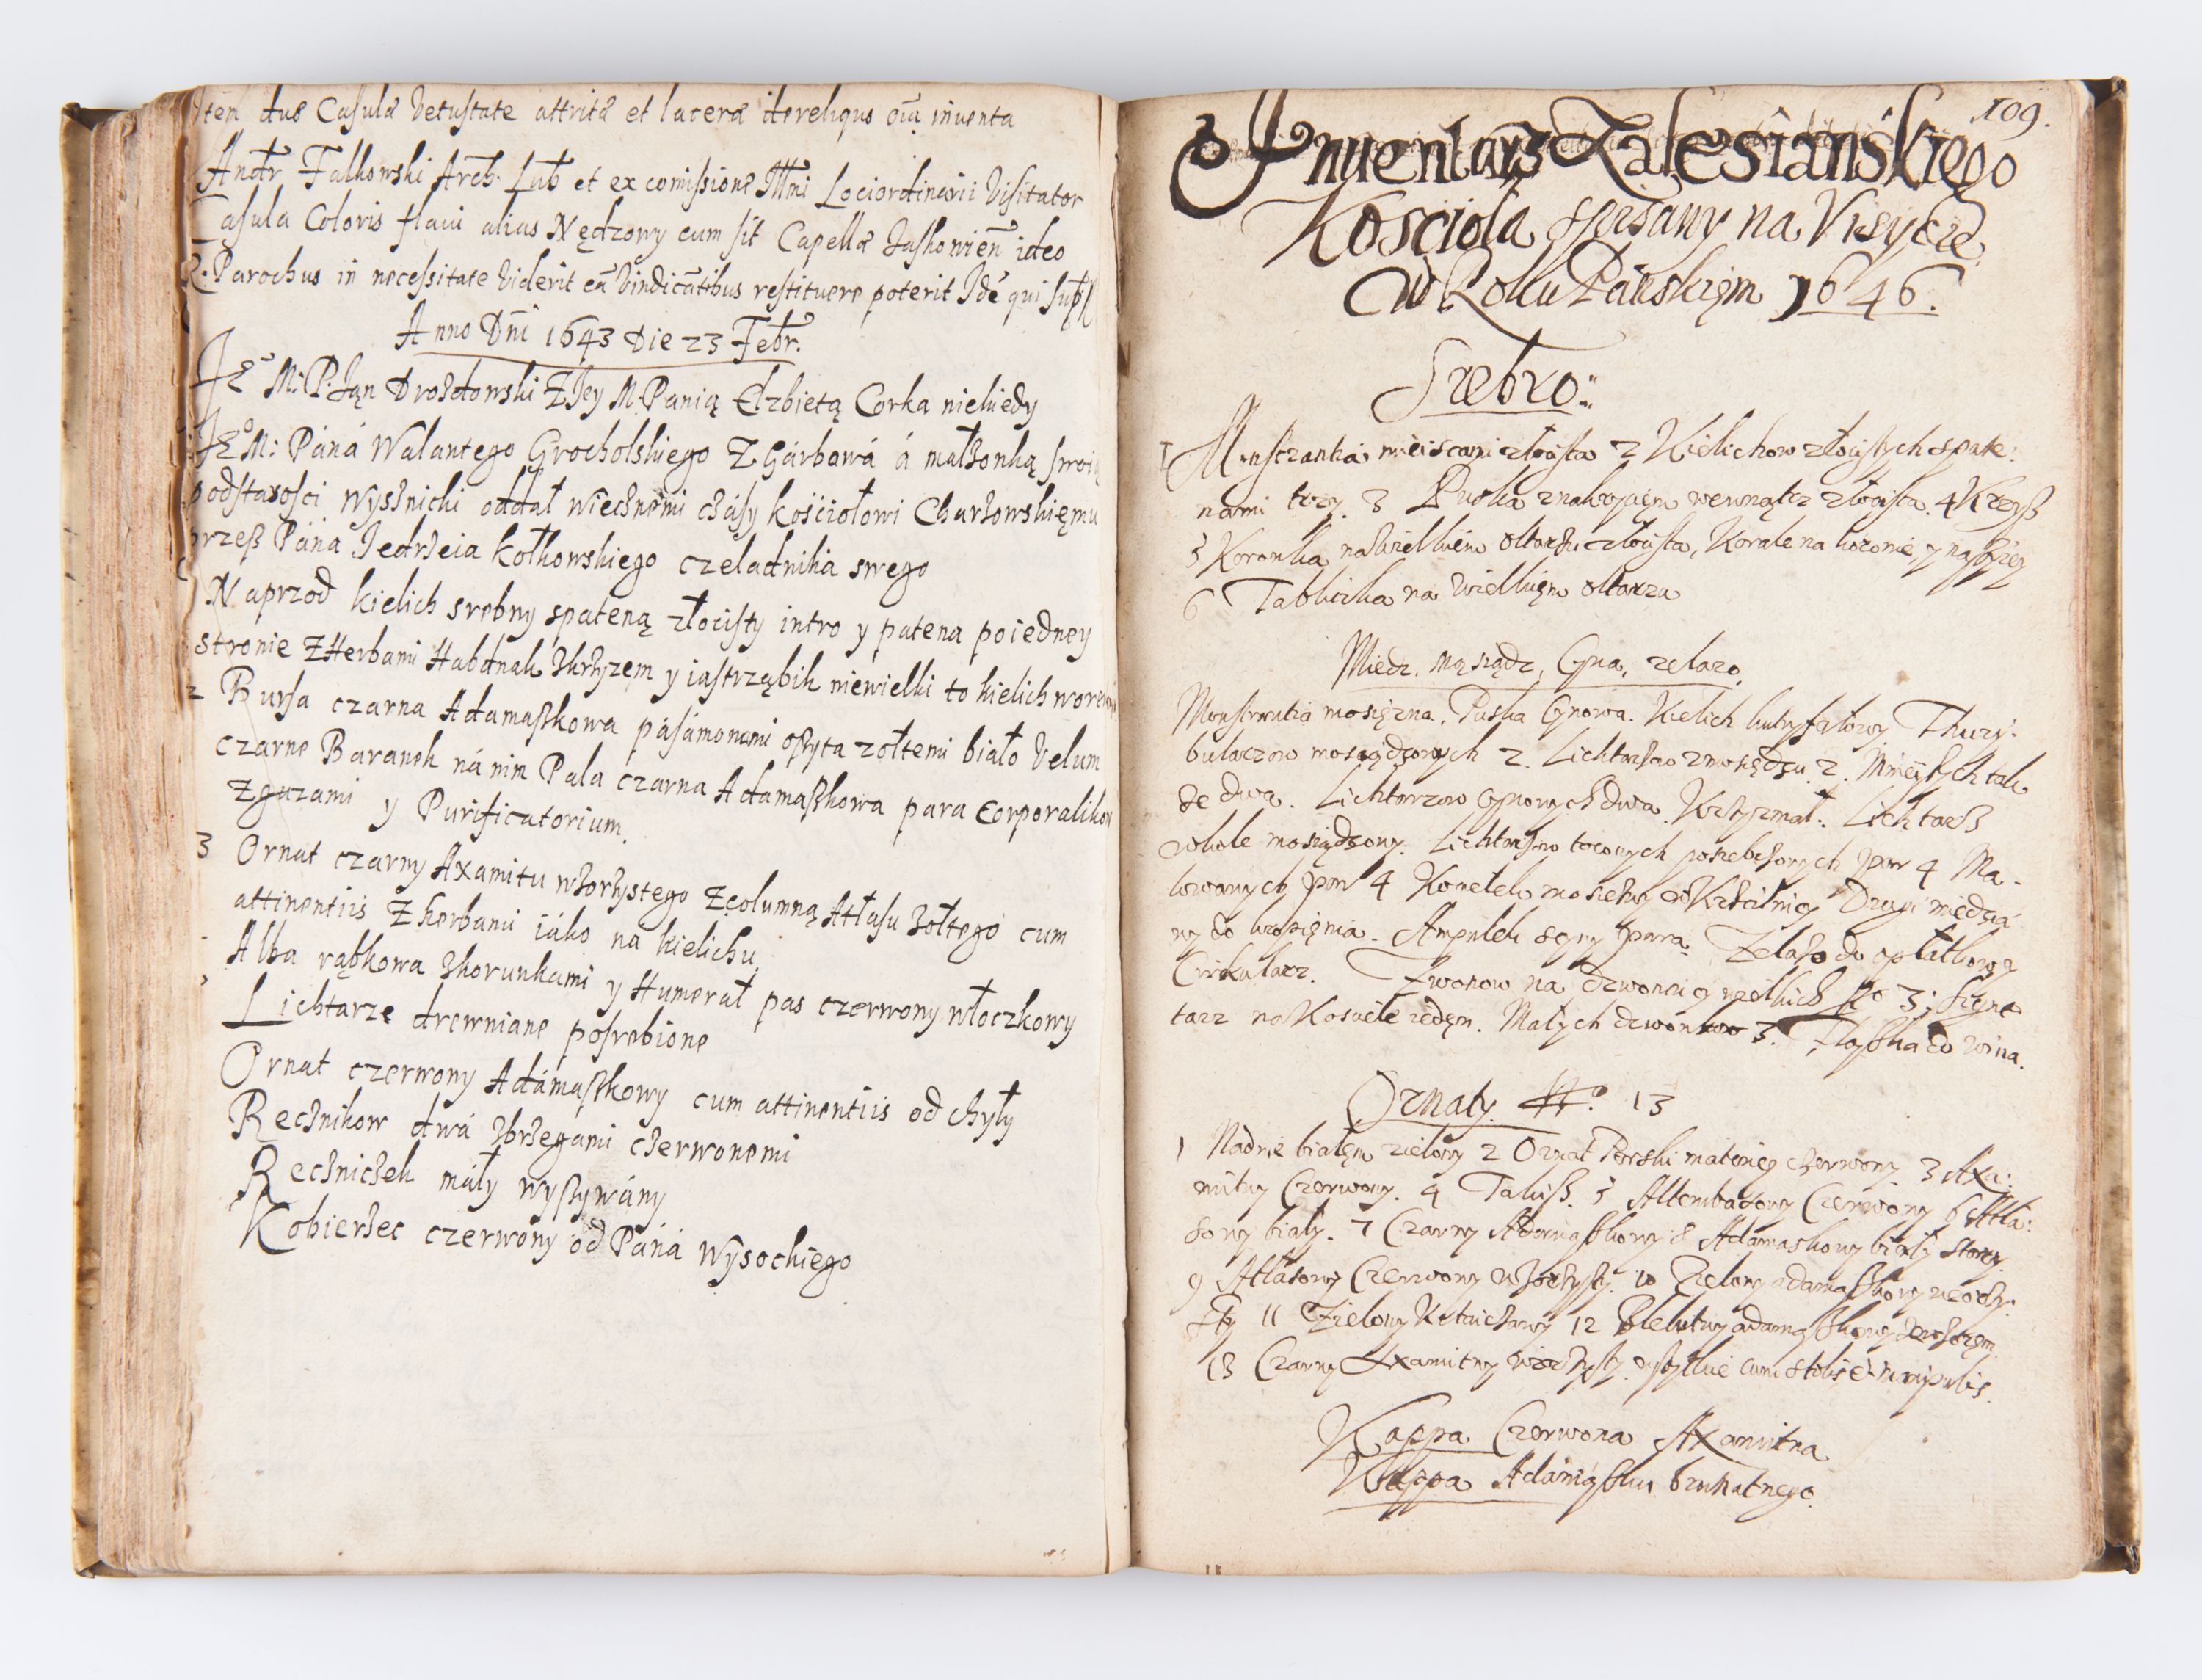 Item duæ Casulæ Vetustate attritæ et laceræ itereliqus oĩa inventa
Andr Falkowski Arch. Lub et ex comissione Illmi Lociordinarii Visitator
Casula Coloris flavi alias Nędzowy cum sit Capellæ Jaskowień ideo
R. Parochus in necessitate Viderit eã Vindicātibus restituere poterit Idē qui supʳ
Anno Dñi 1643 Die 23 Febr.
Je° M: P. Jąn Drozdowski Z Jey M Panią Elzbietą Corka niekiedy
Je° M: Páná Walantego Grocholskiego Z Gárbowá á małzonką swoią
podstarosci Wyssnicki oddał wiecznemi czásy kościołowi Charzowskięmu
przeß Páná Jedrzeia kołkowskiego czeladnika swego
1 Naprzod kielich srebny spateną złocisty intro y patena poiedney
stronie Z Herbami Habdnak zkrzyzem y iastrząbik niewielki to kielich
2 Bursa czarna Adamaszkowa pásámonami oszyta zołtemi biało Velum
czarne Baranek ná nim Pala czarna Adamaszkowa para corporalikow
Zguzami y Purificatorium.
3 Ornat czarny Axamitu wzorzystego Zcolumną Atłasu zołtego cum
attinentiis Z herbami iáko na kielichu.
Alba rąbkowa zkorunkami y Humerał pas czerwony włoczkowy
Lichtarze drewniane posrebione
Ornat czerwony Adámaszkowy cum attinentiis od chyły
Recznikow dwá zbrzegami czerwonemi
Reczniczek máły wyszywány
Kobierzec czerwony od Páná Wysockiego
109.
Inuentarz Zalesianskiego
Kosciola spisany na Visycie
W Roku Pańskięm 1646.
Srebro:
1 Monstrantia mieiscami złocista 2 Kielichow złocistych spate:
nami trzy. 3 Puska znakryciem wewnątrz złocista. 4 Krzyß
5 Koronka na Wielkięm Oltarzu złocista, Korale na koronie y na szyey
6 Tabliczka na Wielkięm Oltarzu
Miedz. Mąsiądz, Cyna, zelazo.
Monstrantia mosięzna. Puska Cynowa. Kielich kuprysztłowy Thury:
bularzow mosiądzowych 2. Lichtarzow zmosiędzu 2. Mnieyszych tak
ze dwa. Lichtarzow Cynowych dwa Krzyzmał: Lichtarß
wkole mosiądzowy. Lichtarzow toconych posrebrzonych par 4 Ma-
lowanych par 4 Kociełek mosiezny w Krzcilnicy Drugi miedzia
ny do kropięnia. Ampułek Cyny para. Zelazo do opłatkow y
Cirkularz. Zwonow na dzwonicy wielkich No 3: Sygna
tarz na Kosciele iedęn. Małych dzwonkow 3. Flaszka do Wina.
Ornaty No. 13
1 Nadnie białęm zielony 2 Ornat Perski materiey czerwony. 3 Axa:
mitny Czerwony. 4 Taluß. 5 Altembasowy Czerwony 6 Atła:
sowy biały. 7 Czarny Adamaszkowy 8 Adamaskowy biały stary
9 Atłasowy Czerwony wzorzysty. 10 Zielony adamaszkowy wzorzy
sty 11 Zielony Kitaiczany 12 Błekitny adamaszkowy zwzorem
13 Czarny Axamitny wzorzysty. wszytkie cum stolis et manipulis.
Kappa Czerwona Axamitna
Kappa Adamaszku brunatnego